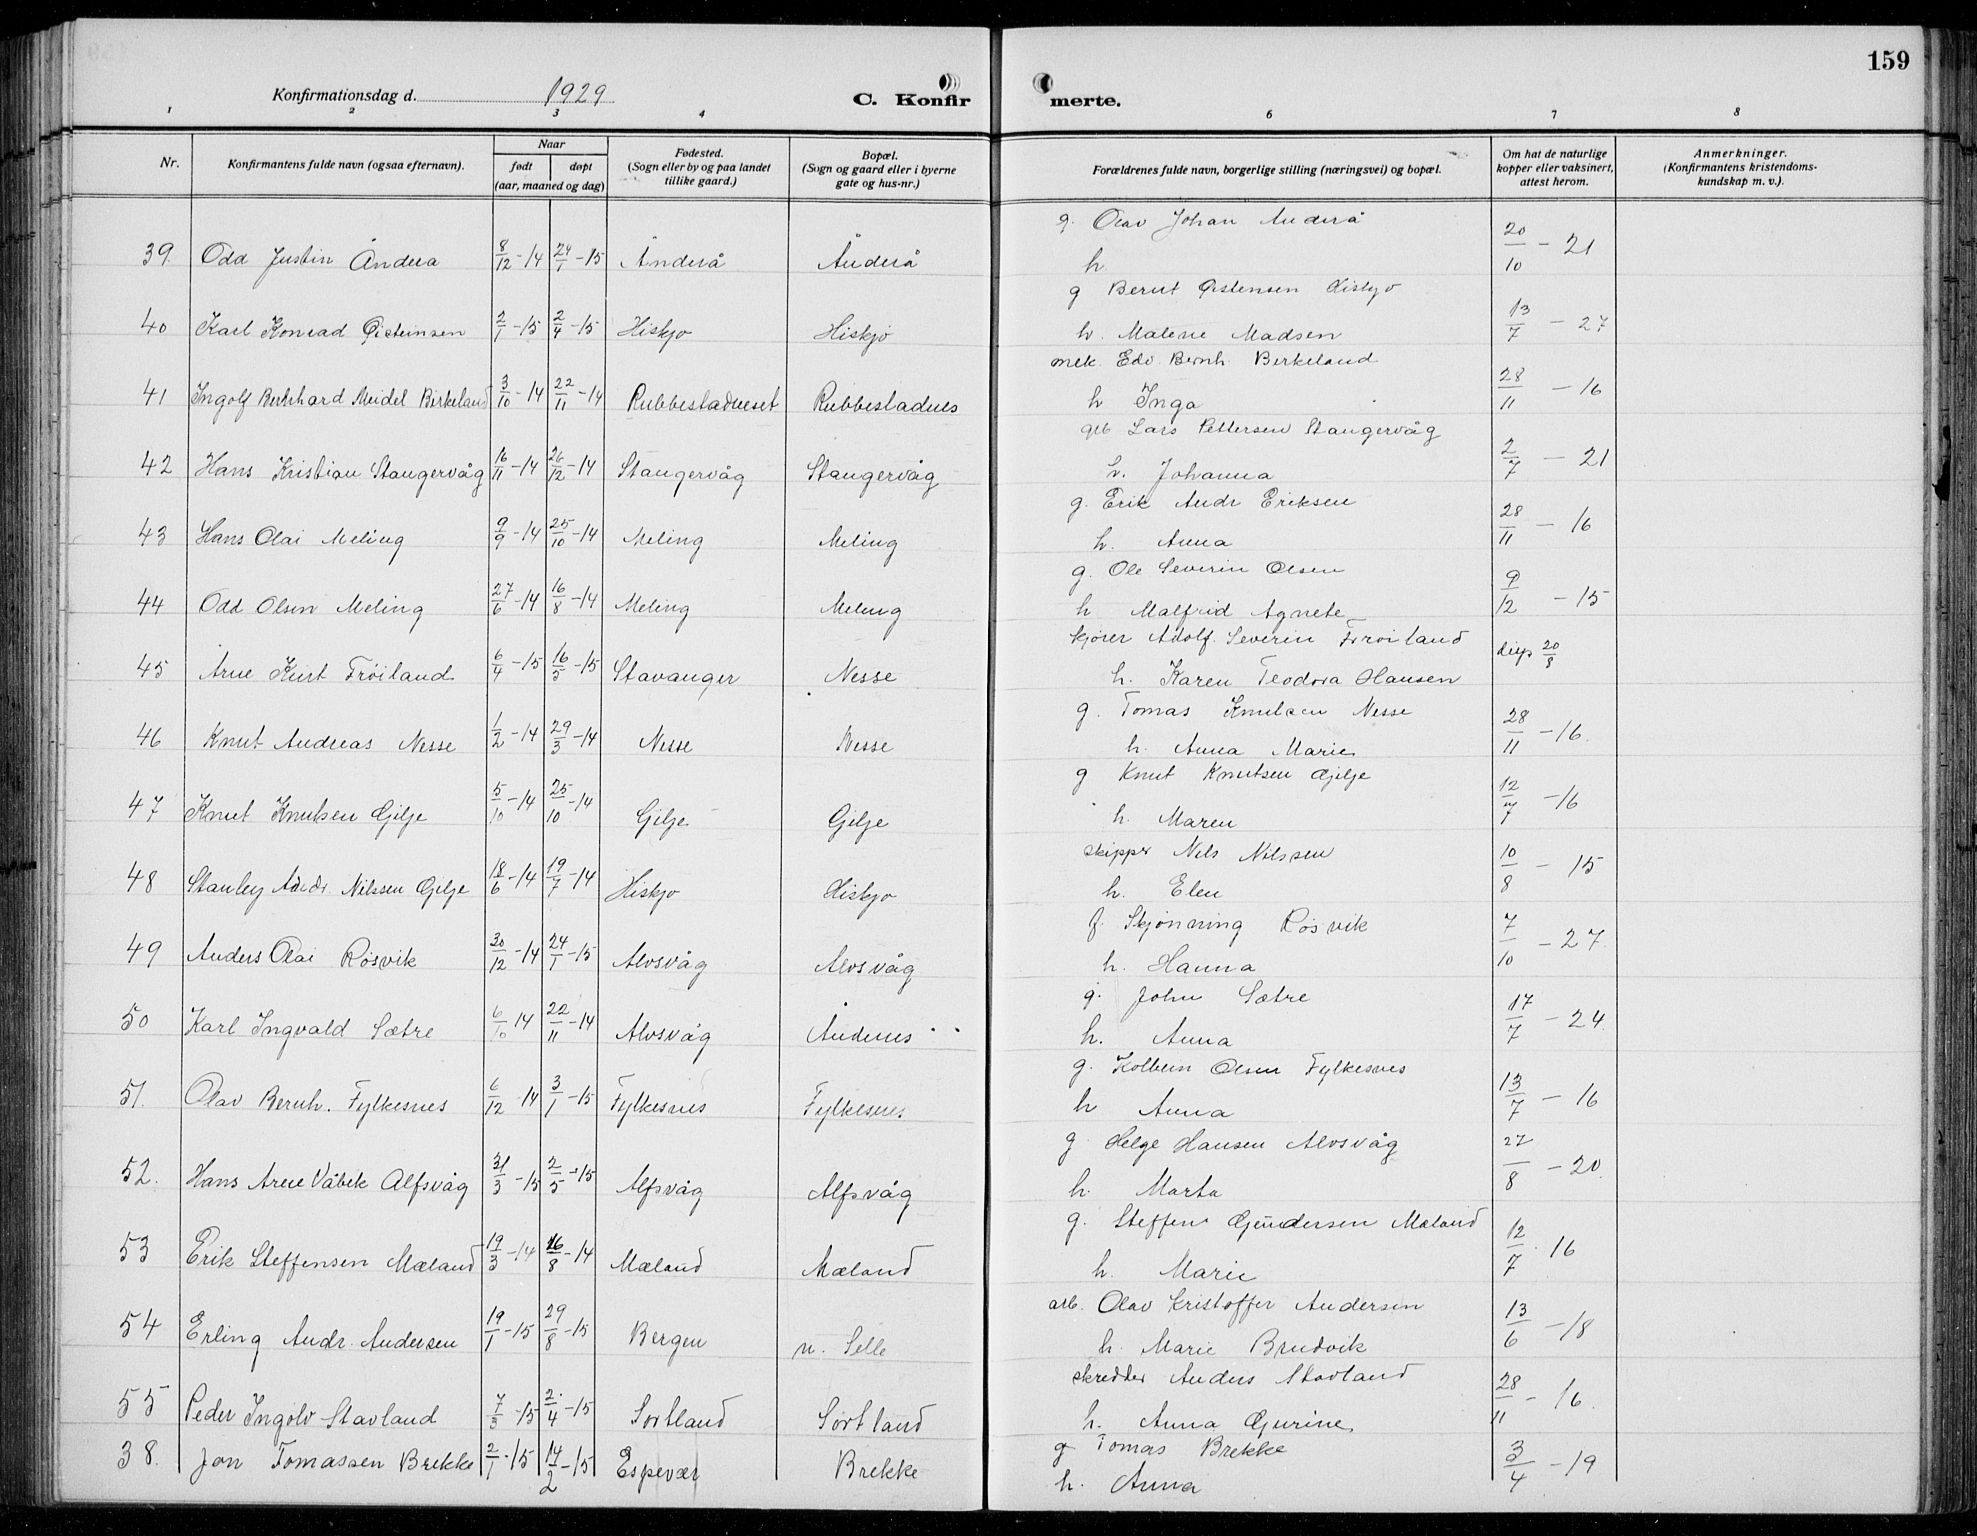 159
Konfirmationsdag d. 1929 C. Konfirmerte.
1 2 3 4 6 7 8
Nr. Konfirmantens fulde navn (ogsaa efternavn). Naar født døpt (aar, maaned og dag) Fødested. (Sogn eller by og paa landet tillike gaard.) Bopæl. (Sogn og gaard eller i byerne gate og hus-nr.) Forældrenes fulde navn, borgerlige stilling (næringsvei) og bopæl. Om hat de naturlige kopper eller vaksinert, attest herom. Anmerkninger. (Konfirmantens kristendomskundskap m. v.).
g. Olav Johan Anderå
39. Odd Justin Åndera 8/12-14 24/1-15 Anderå Åuderå h. 20/10-21
g Bernt Østensen Hiskjo
40 Karl Konrad Øisteinsen 2/1-15 2/4-15 Hiskjo Hiskjo h. Malene Madsen 13/7-27
mek. Edv. Bernh. Birkeland
41 Ingolf Bernhard Meidel Birkeland 3/10-14 22/11-14 Rubbestadneset Rubbestadnes h Inga 28/11-16
Lars Pettersen Stangervåg
42 Hans Kristian Stangervåg 16/11-14 26/12-14 Stangervåg Stangervåg h. Johanna 2/7-21
g. Erik Andr Eriksen
43 Hans Olai Meling 9/9-14 25/10-14 Meling Meling h. Anna 28/11-16
g. Ole Severin Olsen
44 Odd Olsen Meling 27/6-14 16/8-14 Meling Meling h Malfrid Agnete 9/12-15
skjører Adolf Severin Frøiland
45 Arne Kurt Frøiland 6/4-15 16/5-15 Stavanger Nesse h. Karen Teodora Hansen 20/8
g. Tomas Knutsen Nesse
46 Knut Andreas Nesse 1/2-14 29/3-14 Nesse Nesse h. Anna Marie 28/11-16.
g Knut Knutsen Gjilje
47 Knut Knutsen Gilje 5/10-14 25/10-14 Gilje Gilje h. Maren 12/7-16
skipper Nils Nilssen
48 Stanley Andr. Nilssen Gilje 18/6-14 19/7-14 Hiskjo Hiskjo h. Elen 10/8-15
f. Skjönning Røsvik
49 Anders Olai Røsvik 30/12-14 24/1-15 Alvsvåg Alvsvåg h. Hanna 7/10-27.
g. John Sætre
50 Karl Ingvald Sætre 6/10 14 22/11-14 Alvsvåg Andenes h. Anna 17/7-24
g. Kolbein Olsen Fylkesnes
51. Olav Bernh. Fylkesnes 6/12 14 3/1-15 Fylkesnes Fylkesnes h Anna 13/7-16
g Helge Hansen Alvsvåg
52. Hans Arne Våbek Alfsvåg 31/3-15 2/5-15 Alfsvåg Alfsvåg h. Marta 27/8-20.
g. Steffen Gundersen Mæland
53 Erik Steffensen Mæland 19/3-14 16/8-14 Mæland Mæland h. Marie 12/7.16
arb. Olav Kristoffer Andersen
54 Erling Andr. Andersen 19/1-15 29/8-15 Bergen n. Selle h. Marie Brudvik 13/6-18
skredder Anders Stavland
55 Peder Ingolv Stavland 7/3-15 2/4-15 Sortland Sortland h. Anna Gurine 28/11-16.
g Tomas Brekke
38. Jon Tomassen Brekke 2/1.15 14/2-15 Espevær Brekke h. Anna 3/4-19